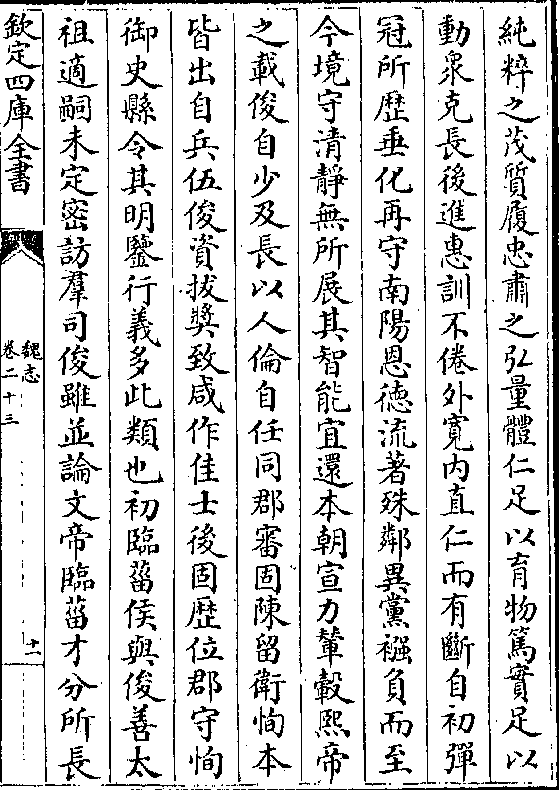 純粹之茂質履忠肅之弘量體仁足以育物篤實足以
動衆克長後進惠訓不倦外寛内直仁而有斷自初彈
冠所歴垂化再守南陽恩德流著殊鄰異黨襁負而至
今境守清靜無所展其智能宜還本朝宣力輦轂熙帝
之載俊自少及長以人倫自任同郡審固陳留衛恂本
皆出自兵伍俊資拔奬致咸作佳士後固歴位郡守恂
御史縣令其明鑒行義多此類也初臨菑侯與俊善太
祖適嗣未定密訪羣司俊雖並論文帝臨菑才分所長
欽定四庫全書
魏志
卷二十三
十一